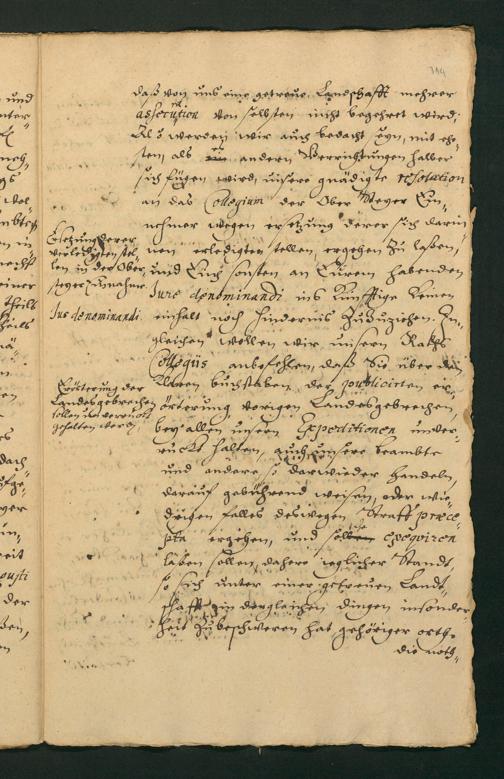 daß von uns eine getreue Landschafft mehrer
assecuration von selbsten nicht begehret wird;
Also werden wir auch bedacht seyn, mit ehe-
sten, als es anderen Verrichtungen halber
sich fügen wird, unsere gnädigste resolution
an das Collegium der Ober Steyer Ein-
nehmer wegen ersetzung derer sich darin-
nen erledigten stellen, ergehen zu laßen,
und Euch sonsten an Eurem habenden
Jure denominandi ins künfftige keinen
einhalt noch hindernis zuzuziehen. In-
gleichen wollen wir unsern Raths
Collegiis anbefehlen, daß Sie über den
klaren buchstaben, der publicirten er-
örterung vorigen Landesgebrechen,
bey allen unsern Expeditionen unver-
ruckt halten, auch unsere beambte
und andere so darwieder handeln,
darauf gebührend weisen, oder wie-
drigen falles deswegen Straff præce-
pta ergehen, und selbige exequiren
laßen sollen, dahero ieglicher Standt,
so sich unter einer getreuen Landt-
schafft in dergleichen dingen insonder-
heit zu beschweren hat, gehöriger orth-
die noth-
Ersetzung derer
erledigten stel-
len in der Ober
steyer Einnahme.
Jus denominandi.
Erörterung der
Landesgebrechen
sollen unverruckt
gehalten werden